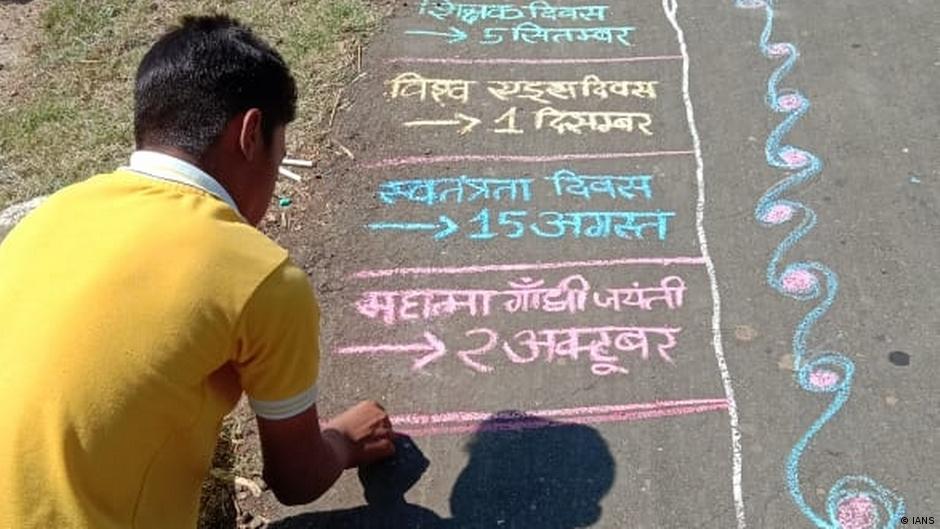 शिक्षक दिवस
→ 5 सितम्बर
विश्व एड्स दिवस
→ 1 दिसम्बर
स्वतंत्रता दिवस
→ 15 अगस्त
महात्मा गाँधी जयंती
→ २ अक्टूबर
© IANS